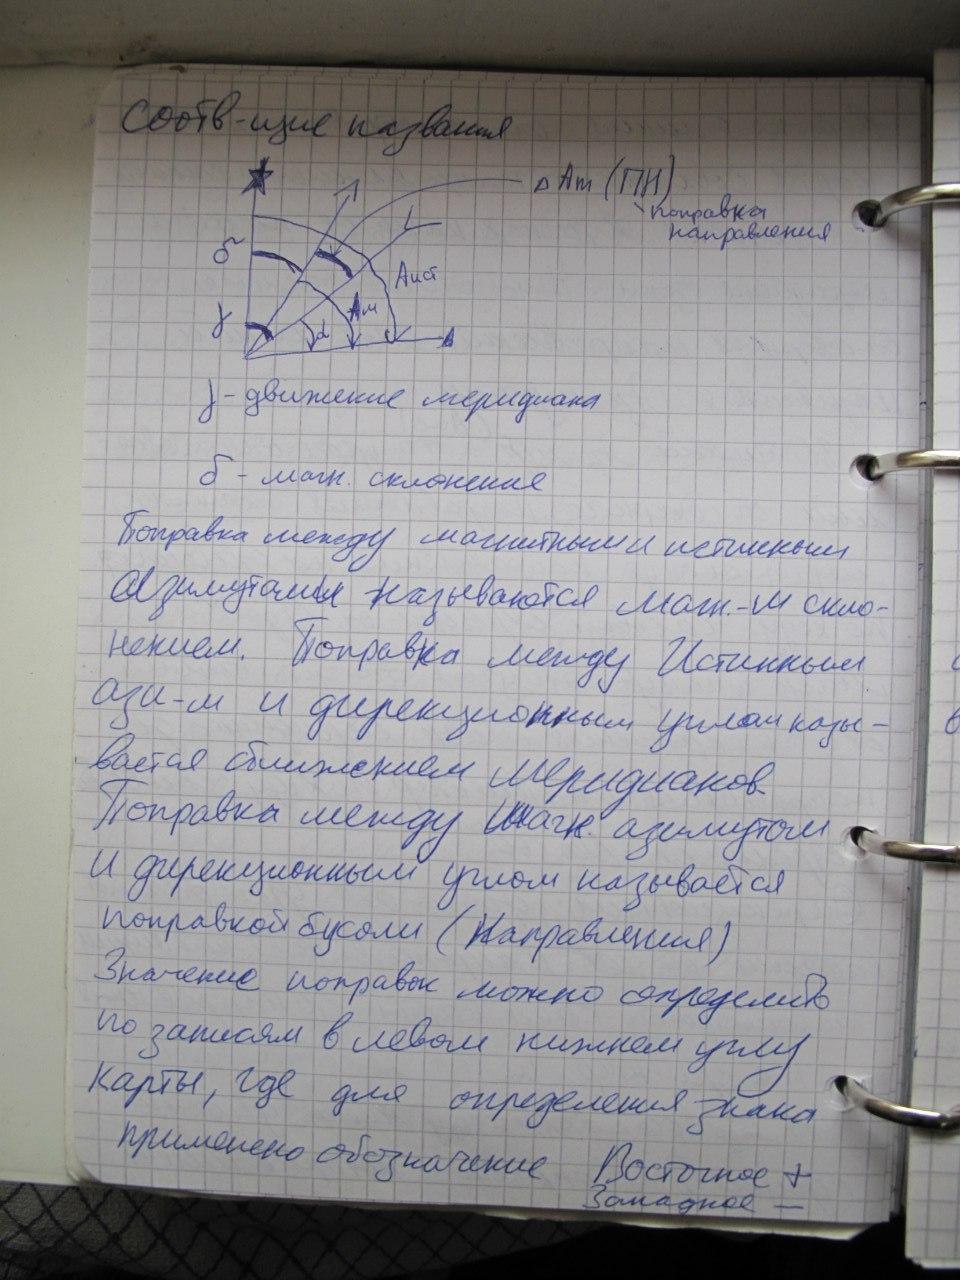 Соотв-щие названия
Δ Am (ПН)
поправка
направления
δ
Aист
Aм
γ
α
γ - движение меридиана
δ - магн. склонение
Поправка между магнитным и истинным
Азимутами называются магн.-м скло-
нением. Поправка между Истинным
ази-м и дирекционным углом назы-
вается сближением меридианов
Поправка между магн. азимутом
и дирекционным углом называется
поправкой бусоли (Направления)
Значение поправок можно определить
по записям в левом нижнем углу
карты, где для определения знака
применено обозначение Восточное +
Западное —